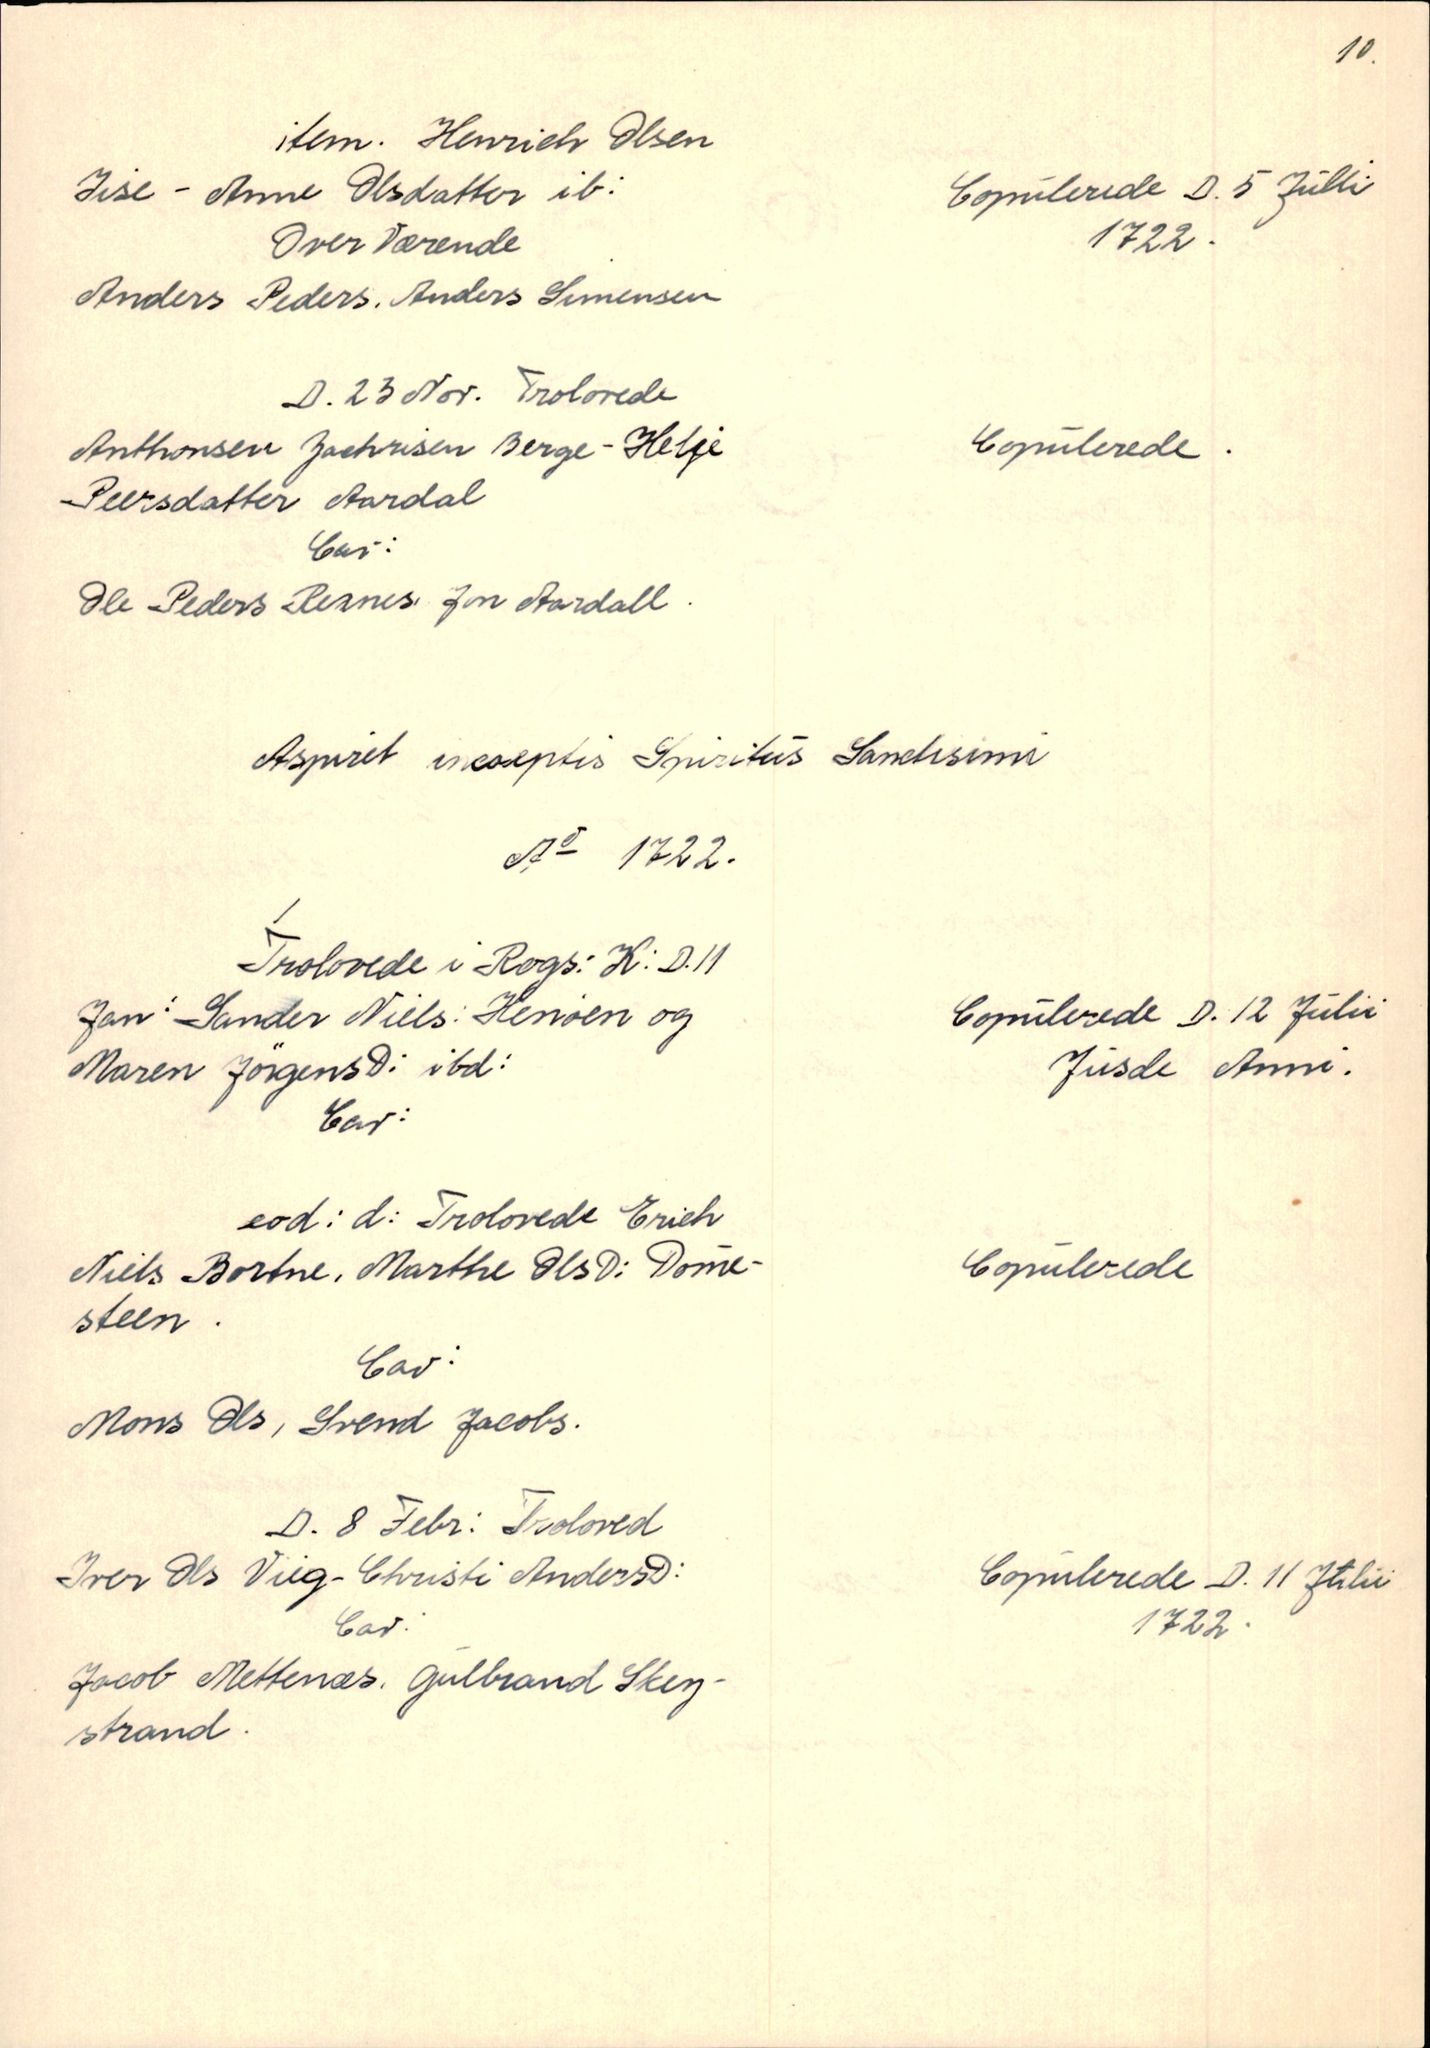 10.
item. Henrich Olsen
Jise - Anne Olsdatter ib:
Copulerede D. 5 Julli
Over Værende
1722.
Anders Peders. Anders Simensen
D. 23 Nov. Trolovede
Anthonsen Zachrisen Berge - Helje
Copulerede.
Peersdatter Aardal
Cav:
Ole Peders Rexnes. Jon Aardall.
Aspiret incoeptis Spiritus Sanctisimi
Aº 1722.
Trolovede i Rogs: K: D. 11
Jan: Sander Niels: Henöen og
Copulerede D. 12 Julii
Maren JörgensD: ibd:
Jusde Anni.
Cav:
eod: d: Trolovede Erich
Niels Bortne, Marthe OlsD: Dome-
Copulerede
steen.
Cav:
Mons Ols, Svend Jacobs.
D. 8 Febr: Troloved
Iver Ols Viig - Christi AndersD:
Copulerede D. 11 Julii
Cav:
1722.
Jacob Mettenæs. Gulbrand Skey-
strand.